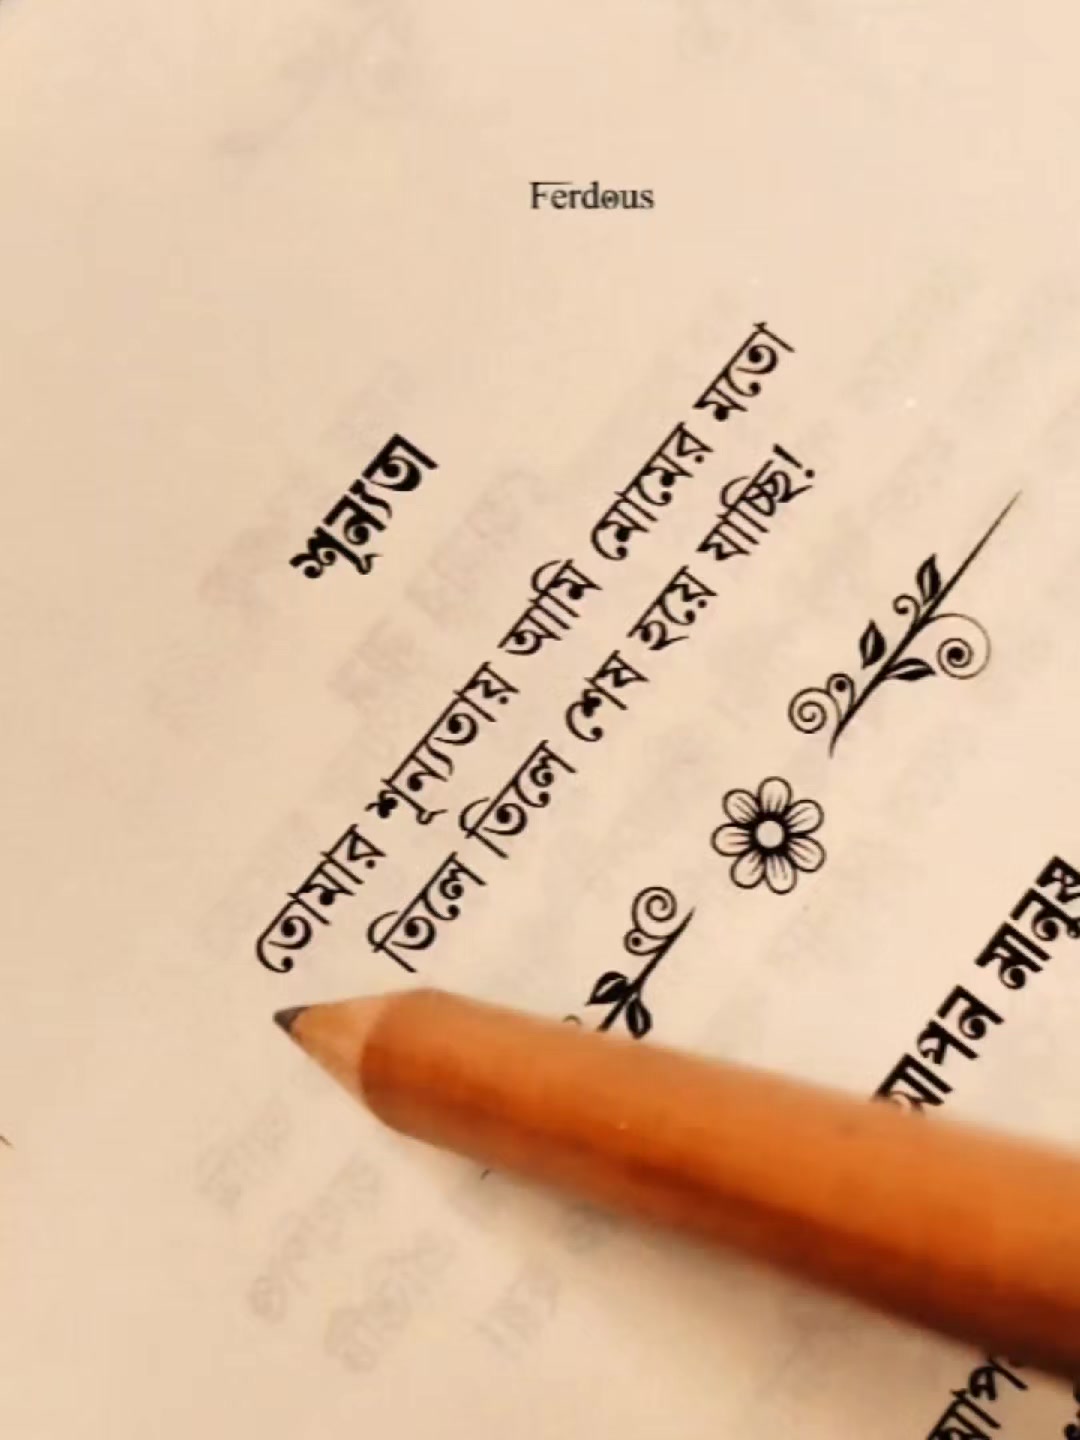 Ferdous
শূন্যতা
তোমার শূন্যতায় আমি মোমের মতো
তিলে তিলে শেষ হয়ে যাচ্ছি!
আপন মানুষ